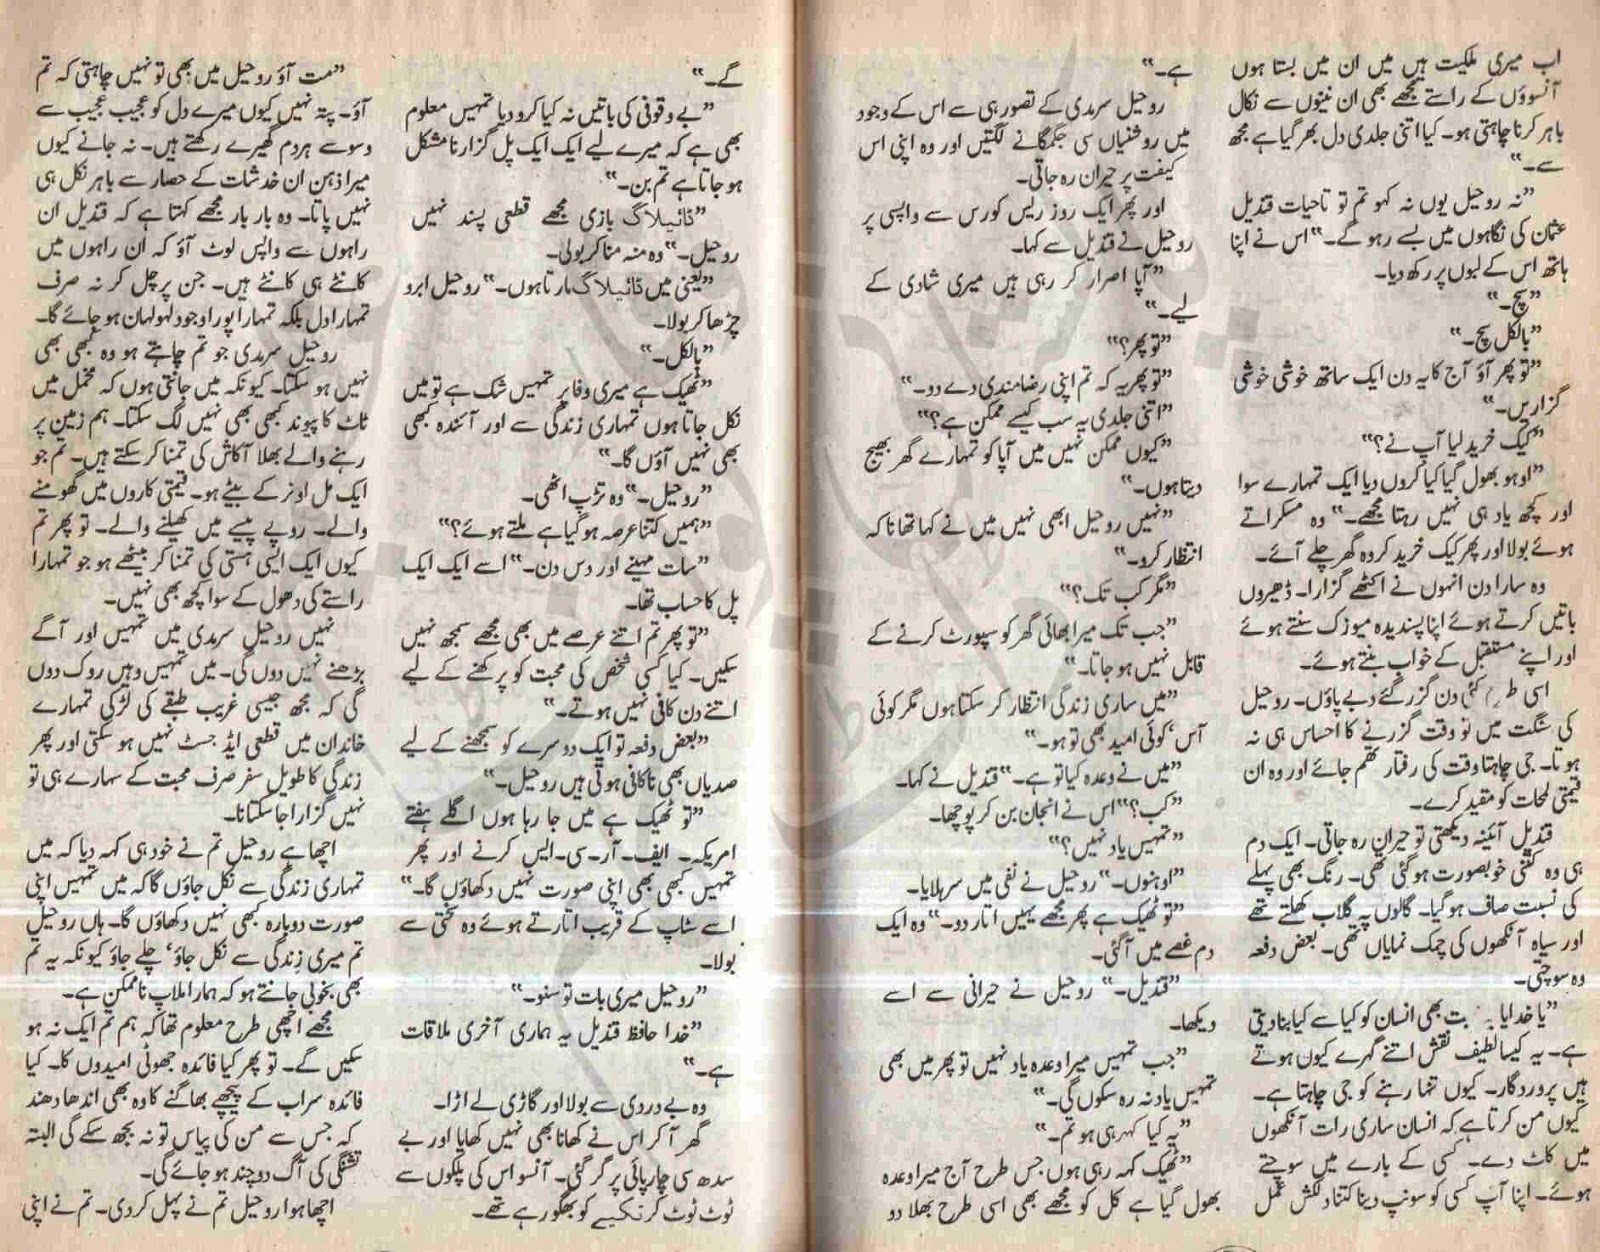 اب میری ملکیت ہیں میں ان میں بستا ہوں
آنسوؤں کے راستے مجھے بھی ان نینوں سے نکال
باہر کرنا چاہتی ہو۔ کیا اتنی جلدی دل بھر گیا ہے مجھ
سے۔"
"نہ روحیل یوں نہ کہو تم تو تاحیات قندیل
عثمان کی نگاہوں میں بسے رہو گے۔" اس نے اپنا
ہاتھ اس کے لبوں پر رکھ دیا۔
"سچ۔"
"بالکل سچ۔"
"تو پھر آؤ آج کا یہ دن ایک ساتھ خوشی خوشی
گزاریں۔"
"کیک خرید لیا آپ نے؟"
"اوہو بھول گیا کیا کروں دیا ایک تمہارے سوا
اور کچھ یاد ہی نہیں رہتا مجھے۔" وہ مسکراتے
ہوئے بولا اور پھر کیک خرید کر وہ گھر چلے آئے۔
وہ سارا دن انہوں نے اکٹھے گزارا۔ ڈھیروں
باتیں کرتے ہوئے اپنا پسندیدہ میوزک سنتے ہوئے
اور اپنے مستقبل کے خواب بنتے ہوئے۔
اسی طرح کئی دن گزر گئے دبے پاؤں۔ روحیل
کی سنگت میں تو وقت گزرنے کا احساس ہی نہ
ہوتا۔ جی چاہتا وقت کی رفتار تھم جائے اور وہ ان
قیمتی لمحات کو مقید کرے۔
قندیل آئینہ دیکھتی تو حیران رہ جاتی۔ ایک دم
ہی وہ کتنی خوبصورت ہو گئی تھی۔ رنگ بھی پہلے
کی نسبت صاف ہو گیا۔ گالوں پہ گلاب کھلتے تھے
اور سیاہ آنکھوں کی چمک نمایاں تھی۔ بعض دفعہ
وہ سوچتی۔
"یا خدایا بھی انسان کو کیا سے کیا بنا دیتی
ہے۔ یہ کیسا لطیف نقش اتنے گہرے کیوں ہوتے
ہیں پروردگار۔ کیوں تنہا رہنے کو جی چاہتا ہے۔
کیوں من کرتا ہے کہ انسان ساری رات آنکھوں
میں کاٹ دے۔ کسی کے بارے میں سوچتے
ہوئے۔ اپنا آپ کسی کو سونپ دینا کتنا دلکش عمل
ہے۔"
روحیل سرمدی کے تصور ہی سے اس کے وجود
میں روشنیاں سی جگمگانے لگتیں اور وہ اپنی اس
کیفیت پر حیران رہ جاتی۔
اور پھر ایک روز ریس کورس سے واپسی پر
روحیل نے قندیل سے کہا۔
"آپا اصرار کر رہی ہیں میری شادی کے
لیے۔"
"تو پھر؟"
"تو پھر یہ کہ تم اپنی رضامندی دے دو۔"
"اتنی جلدی یہ سب کیسے ممکن ہے؟"
"کیوں ممکن نہیں میں آپا کو تمہارے گھر بھیج
دیتا ہوں۔"
"نہیں روحیل ابھی نہیں میں نے کہا تھا نا کہ
انتظار کرو۔"
"مگر کب تک؟"
"جب تک میرا بھائی گھر کو سپورٹ کرنے کے
قابل نہیں ہو جاتا۔"
"میں ساری زندگی انتظار کر سکتا ہوں مگر کوئی
آس، کوئی امید بھی تو ہو۔"
"میں نے وعدہ کیا تو ہے۔" قندیل نے کہا۔
"کب؟" اس نے انجان بن کر پوچھا۔
"تمہیں یاد نہیں؟"
"اونہوں۔" روحیل نے نفی میں سر ہلایا۔
"تو ٹھیک ہے پھر مجھے یہیں اتار دو۔" وہ ایک
دم غصے میں آ گئی۔
"قندیل۔" روحیل نے حیرانی سے اسے
دیکھا۔
"جب تمہیں میرا وعدہ یاد نہیں تو پھر میں بھی
تمہیں یاد نہ رہ سکوں گی۔"
"یہ کیا کہہ رہی ہو تم۔"
"ٹھیک کہہ رہی ہوں جس طرح آج میرا وعدہ
بھول گیا ہے کل کو مجھے بھی اسی طرح بھلا دو
گے۔"
"بے وقوفی کی باتیں نہ کیا کرو دیا تمہیں معلوم
بھی ہے کہ میرے لیے ایک ایک پل گزارنا مشکل
ہو جاتا ہے تم بن۔"
"ڈائیلاگ بازی مجھے قطعی پسند نہیں
روحیل۔" وہ منہ منا کر بولی۔
"یعنی میں ڈائیلاگ مارتا ہوں۔" روحیل ابرو
چڑھا کر بولا۔
"بالکل۔"
"ٹھیک ہے میری وفا پر تمہیں شک ہے تو میں
نکل جاتا ہوں تمہاری زندگی سے اور آئندہ کبھی
بھی نہیں آؤں گا۔"
"روحیل۔" وہ تڑپ اٹھی۔
"ہمیں کتنا عرصہ ہو گیا ہے ملتے ہوئے؟"
"سات مہینے اور دس دن۔" اسے ایک ایک
پل کا حساب تھا۔
"تو پھر تم اتنے عرصے میں بھی مجھے سمجھ نہیں
سکیں۔ کیا کسی شخص کی محبت کو پرکھنے کے لیے
اتنے دن کافی نہیں ہوتے۔"
"بعض دفعہ تو ایک دوسرے کو سمجھنے کے لیے
صدیاں بھی ناکافی ہوتی ہیں روحیل۔"
"تو ٹھیک ہے میں جا رہا ہوں اگلے ہفتے
امریکہ۔ ایف۔ آر۔ سی۔ ایس کرنے اور پھر
تمہیں کبھی بھی اپنی صورت نہیں دکھاؤں گا۔"
اسے سٹاپ کے قریب اتارتے ہوئے وہ سختی سے
بولا۔
"روحیل میری بات تو سنو۔"
"خدا حافظ قندیل یہ ہماری آخری ملاقات
ہے۔"
وہ بے دردی سے بولا اور گاڑی لے اڑا۔
گھر آ کر اس نے کھانا بھی نہیں کھایا اور بے
سدھ سی چارپائی پر گر گئی۔ آنسو اس کی پلکوں سے
ٹوٹ ٹوٹ کر تکیے کو بھگو رہے تھے۔
"مت آؤ روحیل میں بھی تو نہیں چاہتی کہ تم
آؤ۔ پتہ نہیں کیوں میرے دل کو عجیب عجیب سے
وسوسے ہر دم گھیرے رکھتے ہیں۔ نہ جانے کیوں
میرا ذہن ان خدشات کے حصار سے باہر نکل ہی
نہیں پاتا۔ وہ بار بار مجھے کہتا ہے کہ قندیل ان
راہوں سے واپس لوٹ آؤ کہ ان راہوں میں
کانٹے ہی کانٹے ہیں۔ جن پر چل کر نہ صرف
تمہارا دل بلکہ تمہارا پورا وجود لہولہان ہو جائے گا۔
روحیل سرمدی جو تم چاہتے ہو وہ کبھی بھی
نہیں ہو سکتا۔ کیونکہ میں جانتی ہوں کہ مخمل میں
ٹاٹ کا پیوند کبھی بھی نہیں لگ سکتا۔ ہم زمین پر
رہنے والے بھلا آکاش کی تمنا کر سکتے ہیں۔ تم جو
ایک مل اونر کے بیٹے ہو۔ قیمتی کاروں میں گھومنے
والے۔ روپے پیسے میں کھیلنے والے۔ تو پھر تم
کیوں ایک ایسی ہستی کی تمنا کر بیٹھے ہو جو تمہارا
راستے کی دھول کے سوا کچھ بھی نہیں۔
نہیں روحیل سرمدی میں تمہیں اور آگے
بڑھنے نہیں دوں گی۔ میں تمہیں وہیں روک دوں
گی کہ مجھ جیسی غریب طبقے کی لڑکی تمہارے
خاندان میں قطعی ایڈجسٹ نہیں ہو سکتی اور پھر
زندگی کا طویل سفر صرف محبت کے سہارے ہی تو
نہیں گزارا جا سکتا نا۔
اچھا ہے روحیل تم نے خود ہی کہہ دیا کہ میں
تمہاری زندگی سے نکل جاؤں گا کہ میں تمہیں اپنی
صورت دوبارہ کبھی نہیں دکھاؤں گا۔ ہاں روحیل
تم میری زندگی سے نکل جاؤ، چلے جاؤ کیونکہ یہ تم
بھی بخوبی جانتے ہو کہ ہمارا ملاپ ناممکن ہے۔
مجھے اچھی طرح معلوم تھا کہ ہم تم ایک نہ ہو
سکیں گے۔ تو پھر کیا فائدہ جھوٹی امیدوں کا۔ کیا
فائدہ سراب کے پیچھے بھاگنے کا وہ بھی اندھا دھند
کہ جس سے من کی پیاس تو نہ بجھ سکے گی البتہ
تشنگی کی آگ دوچند ہو جائے گی۔
اچھا ہوا روحیل تم نے پہل کر دی۔ تم نے اپنی